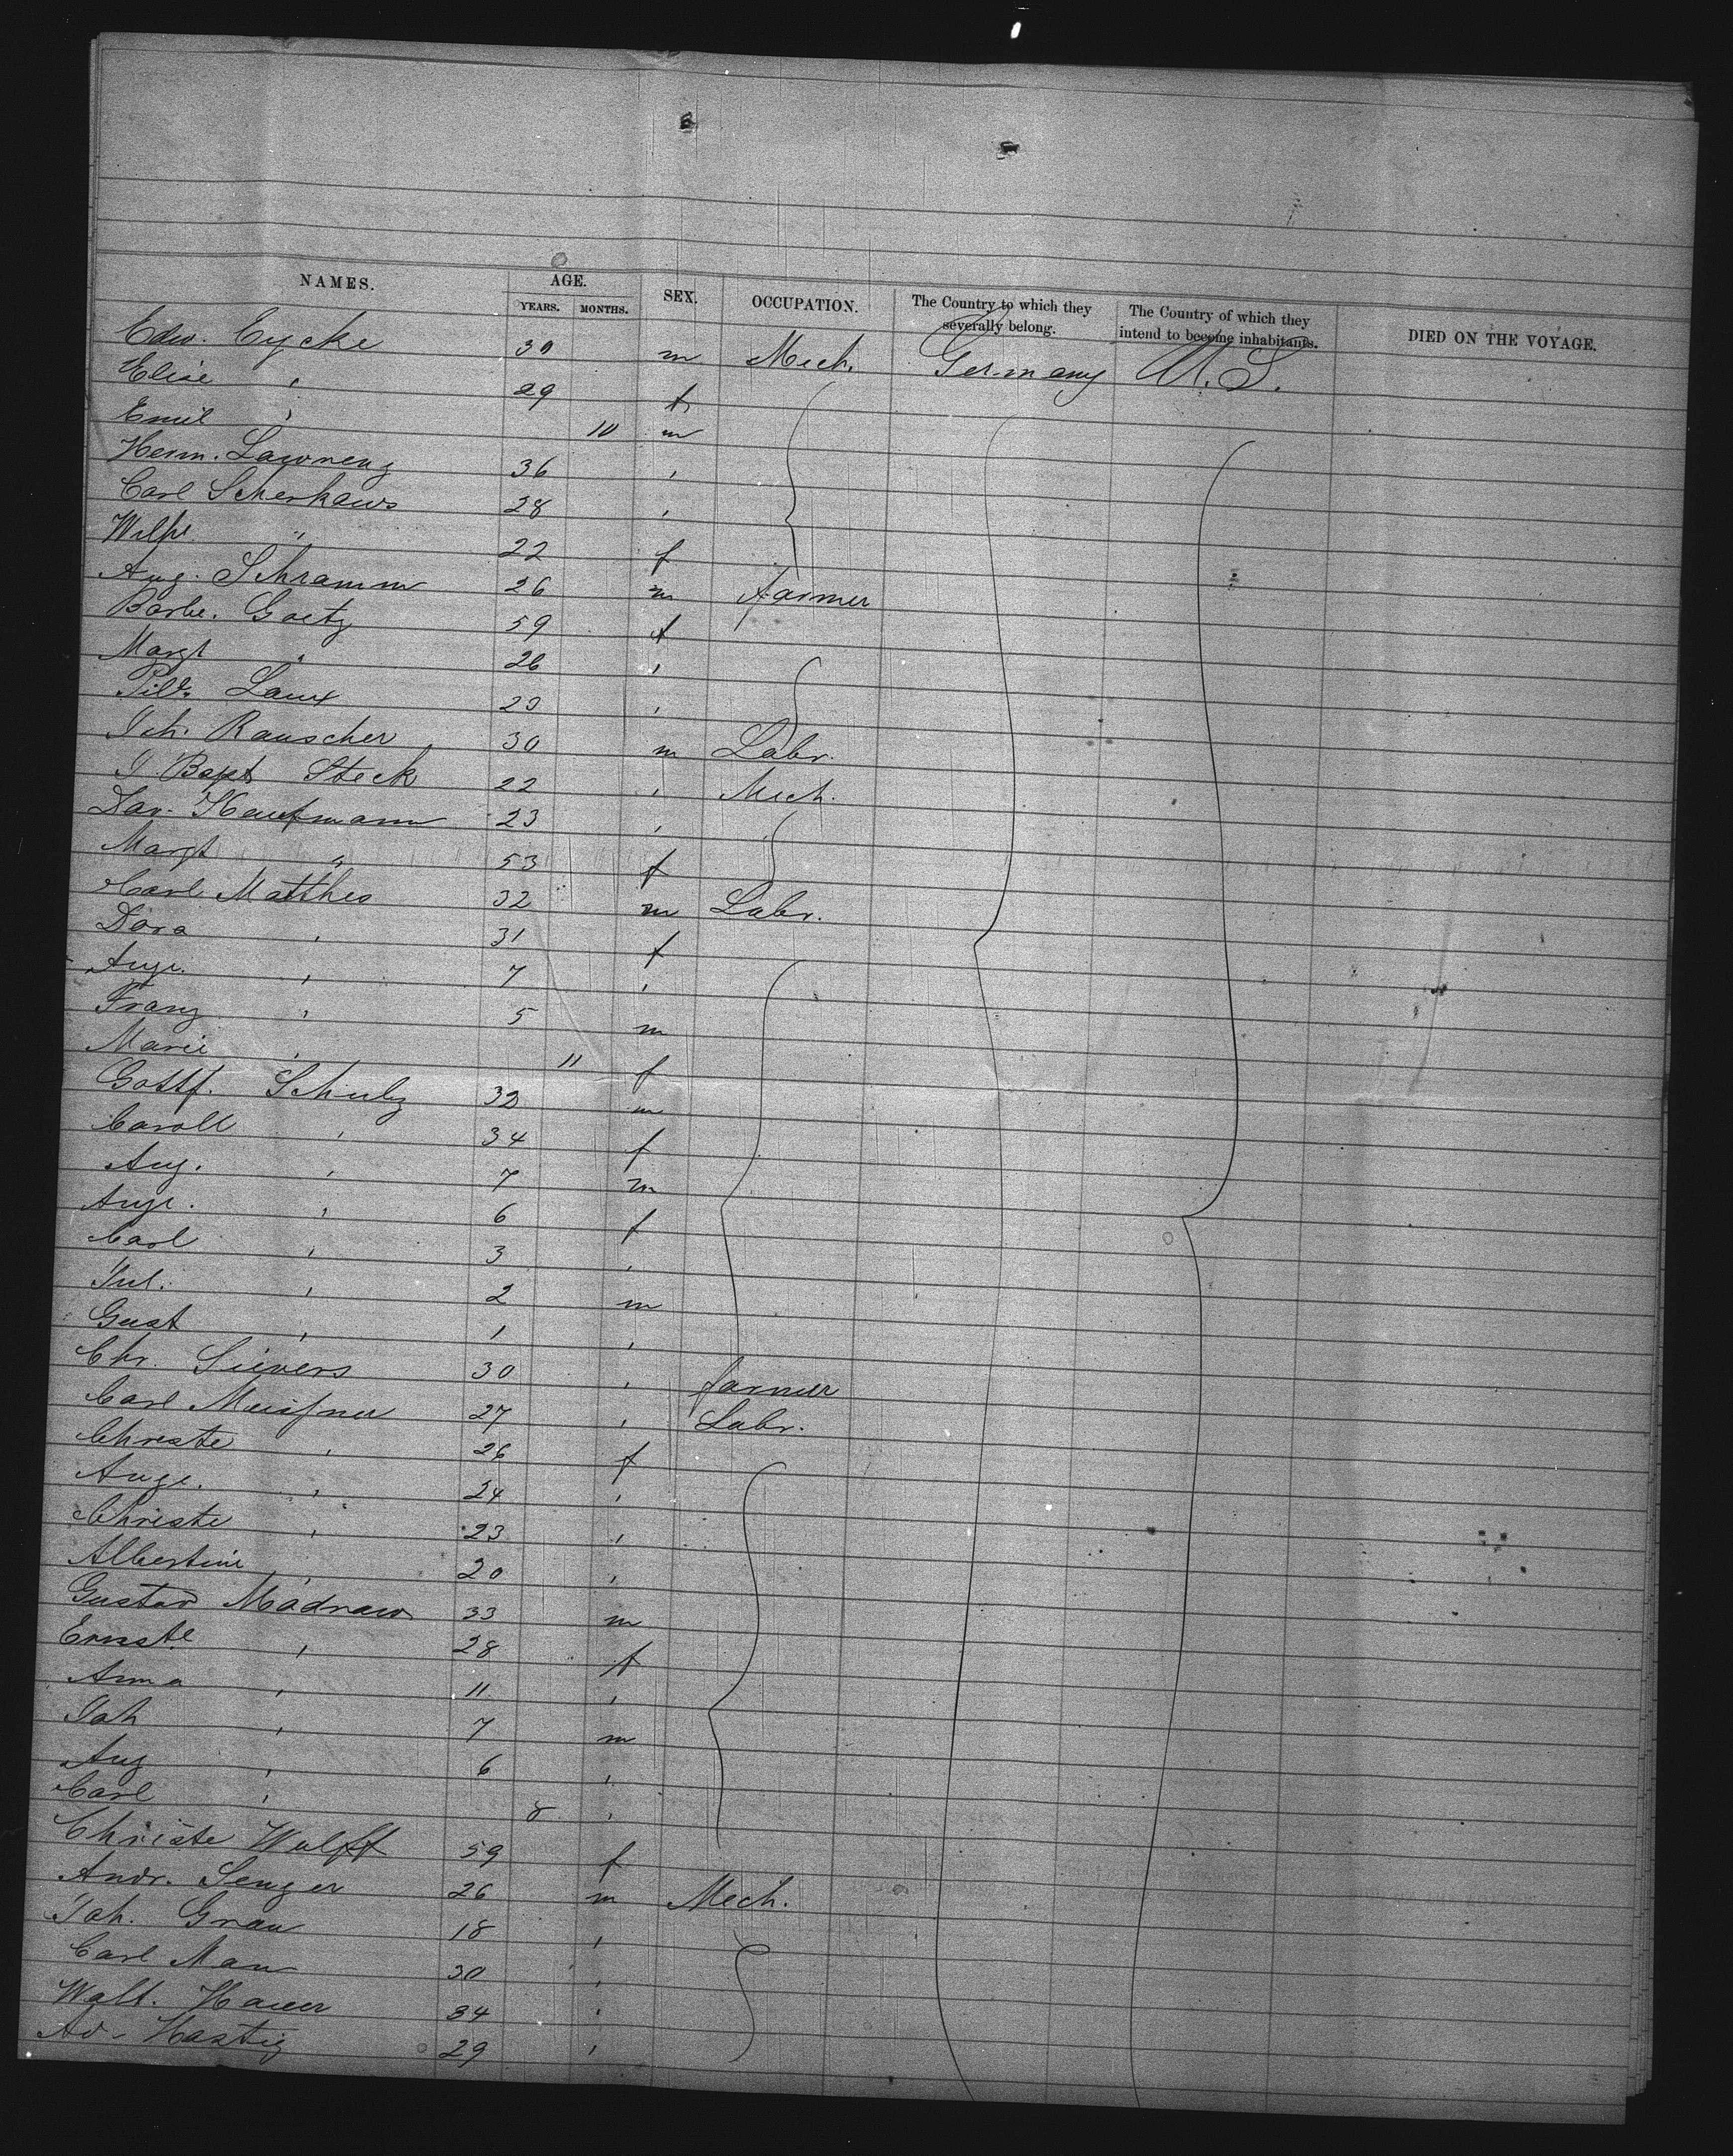 NAMES. AGE. YEARS. MONTHS. SEX. OCCUPATION. The Country to which they severally belong. The Country of which they intend to become inhabitants. DIED ON THE VOYAGE.
Edw. Eycke 30 m Mech. Germany U.S.
Elise " 29 f
Emil " 10 m
Herm. 36 "
Carl 28 "
" 22 f
Aug. Schramm 26 m farmer
Barbe. Goetz 59 f
Margt " 26 "
Laux 23 "
Joh. Rauscher 30 m Labr.
J. Bapt Steck 22 " Mech.
Dav. Kaufmann 23 "
Margt " 53 f
Carl Matthes 32 m Labr.
Dora " 31 f
Auge. " 7 "
Franz " 5 m
Marie " 11 f
Gottf. Schulz 32 m
Caroll " 34 f
Aug. " 7 m
Auge. " 6 f
Carl " 3 "
Jul. " 2 m
Gust " 1 "
Chr. Sievers 30 " farmer
Carl Meissner 27 " Labr.
Christe " 26 f
Auge. " 24 "
Christe " 23 "
Albertine " 20 "
Gustav Madnaw 33 m
Ernste " 28 f
Anna " 11 "
Joh " 7 m
Aug " 6 "
Carl " 8 "
Christe Wulff 59 f
Andr. Senger 26 m Mech.
Joh. Grau 18 "
Carl Mau 30 "
Walt. Hauer 34 "
Ad. Hastig 29 "